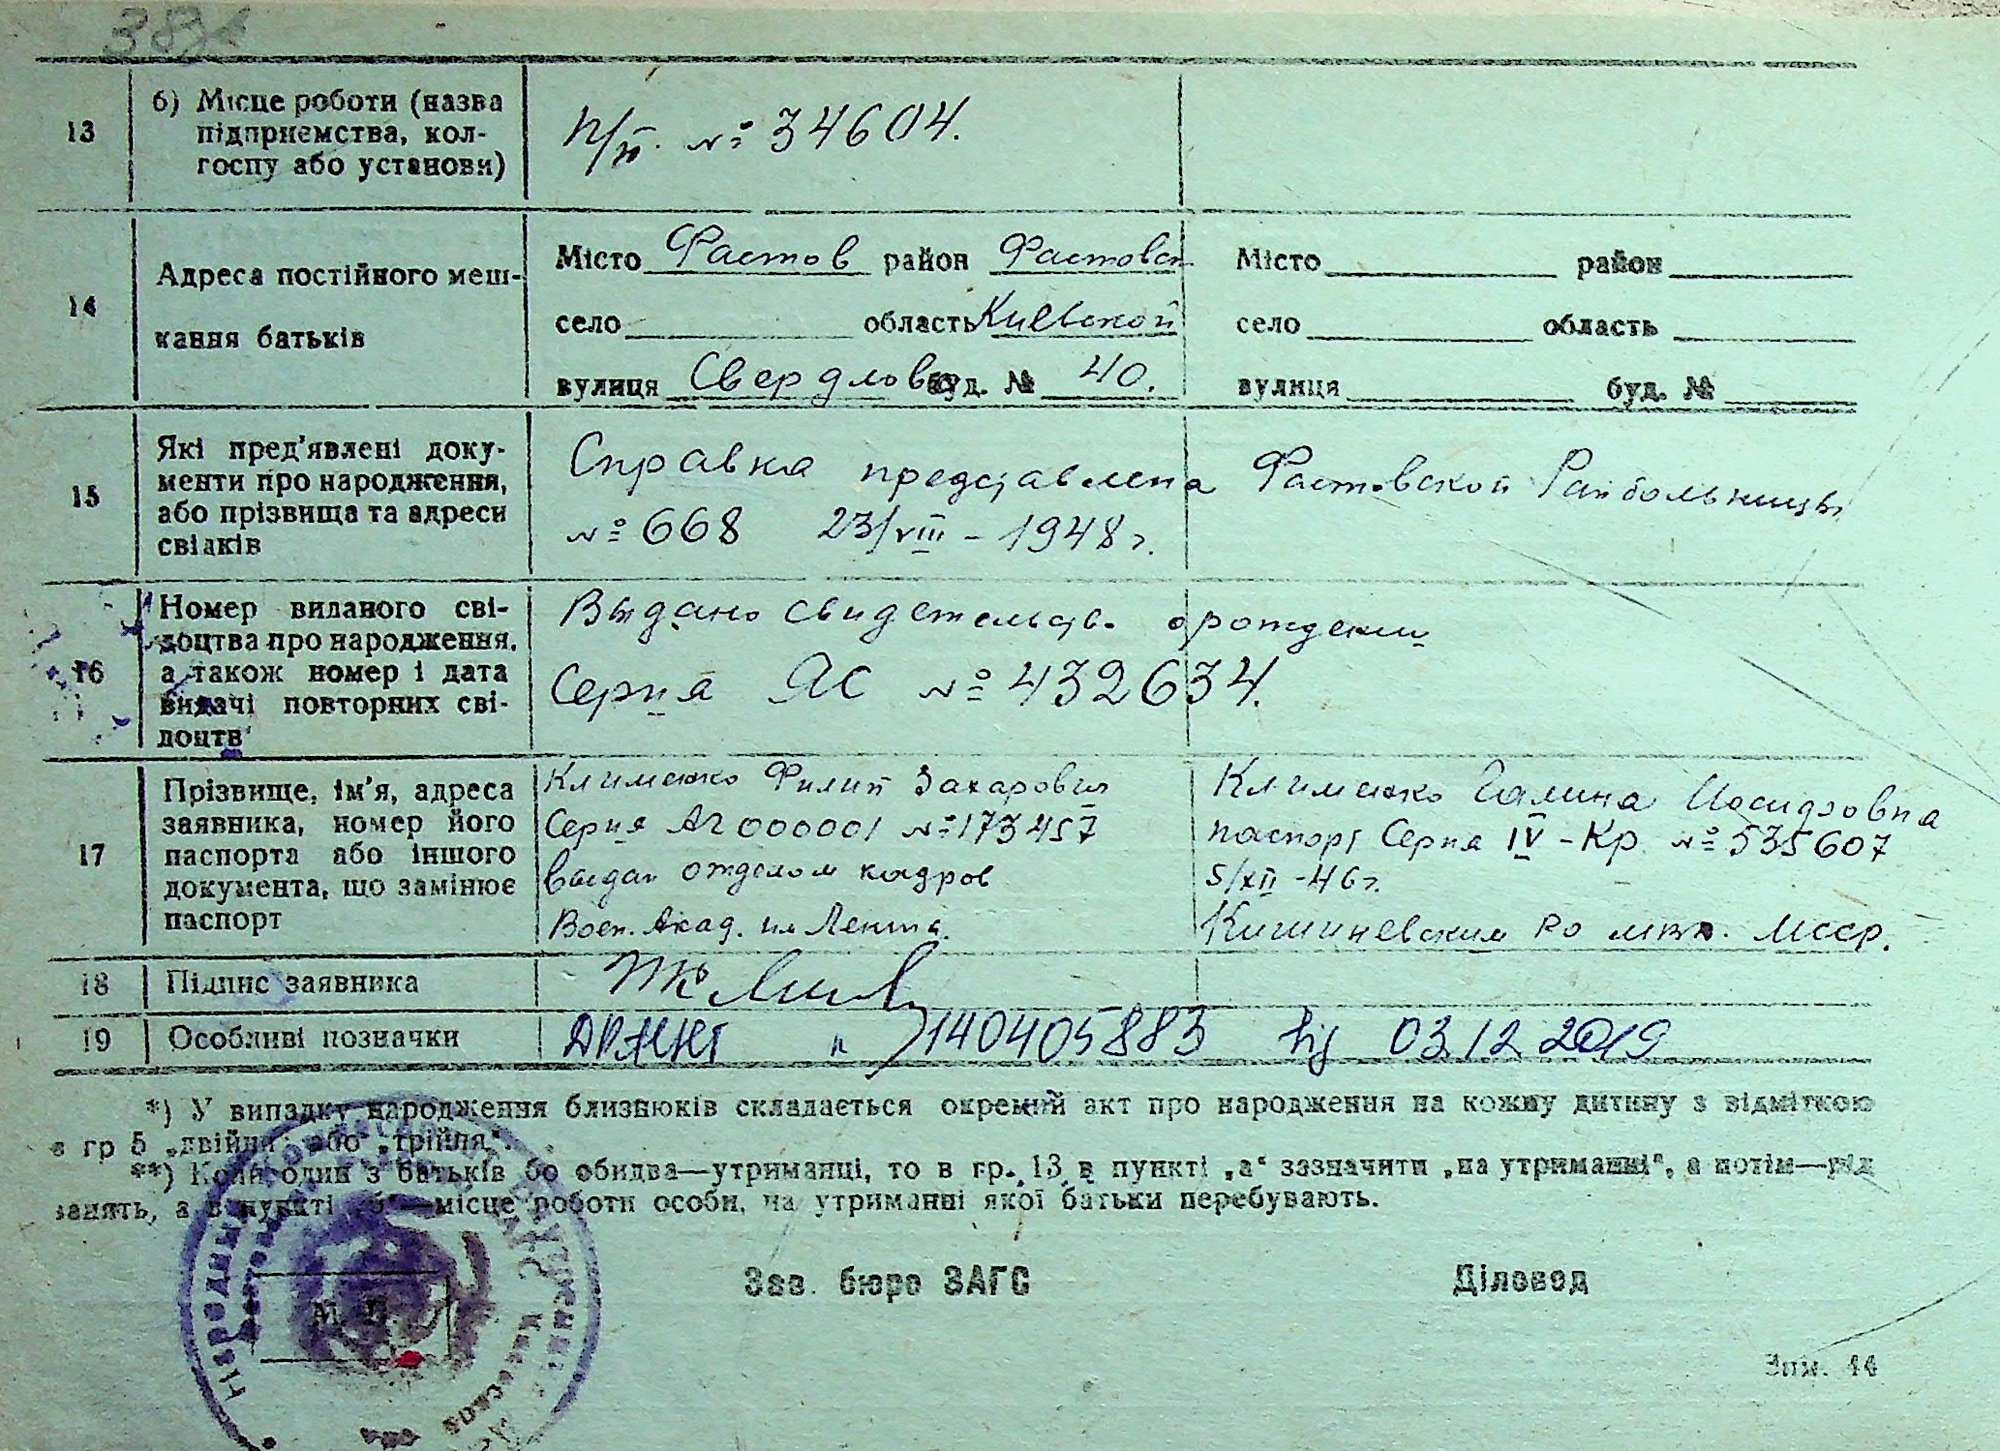 13
б) Місце роботи (назва
підприємства, кол-
госпу або установи)
п/п. № 34604.
14
Адреса постійного меш-
кання батьків
Місто Фастов район Фастовск
село область Киевской
вулиця Свердлова буд. № 40.
Місто район
село область
вулиця буд. №
15
Які пред'явлені доку-
менти про народження,
або прізвища та адреси
свідків
Справка представлена Фастовской Райбольницы
№ 668 23/VIII - 1948 г.
16
Номер виданого сві-
доцтва про народження,
а також номер і дата
видачі повторних сві-
доцтв
Выдано свидетельство о рождении
Серия ЯС № 432634.
17
Прізвище, ім'я, адреса
заявника, номер його
паспорта або іншого
документа, що замінює
паспорт
Клименко Филип Захарович
Серия АГ 000001 № 173457
выдан отделом кадров
Воен. Акад. им Ленина.
Клименко Галина Исидровна
паспорт Серия IV - Кр. № 535607
5/XII - 46 г.
Кишиневским РО МВД. МССР.
18
Підпис заявника
19
Особливі позначки
140405883 від 03.12.2019
*) У випадку народження близнюків складається окремий акт про народження на кожну дитину з відміткою
в гр 5 „двійня" або „трійня".
**) Коли один з батьків бо обидва—утриманці, то в гр. 13 в пункті „а" зазначити „на утриманні", а потім—рід
занять, а в пункті „б"—місце роботи особи, на утриманні якої батьки перебувають.
М. П.
Зав. бюро ЗАГС
Діловод
Зам. 44